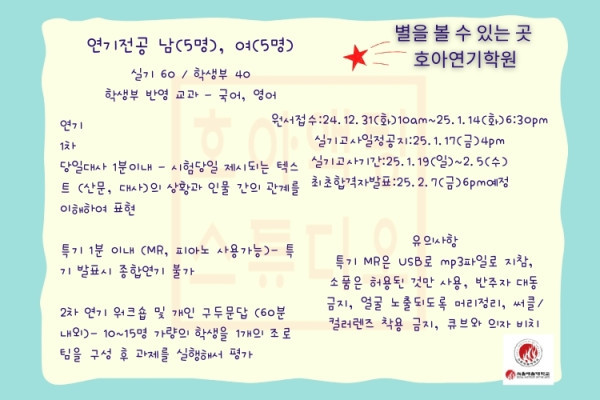 연기전공 남(5명), 여(5명)
실기 60 / 학생부 40
학생부 반영 교과 - 국어, 영어
연기
1차
당일대사 1분이내 - 시험당일 제시되는 텍스
트 (산문, 대사)의 상황과 인물 간의 관계를
이해하여 표현
특기 1분 이내 (MR, 피아노 사용가능)- 특
기 발표시 종합연기 불가
2차 연기 워크숍 및 개인 구두문답 (60분
내외)- 10~15명 가량의 학생을 1개의 조로
팀을 구성 후 과제를 실행해서 평가
별을 볼 수 있는 곳
호아연기학원
원서접수:24.12.31(화)10am~25.1.14(화)6:30pm
실기고사일정공지:25.1.17(금)4pm
실기고사기간:25.1.19(일)~2.5(수)
최초합격자발표:25.2.7(금)6pm예정
유의사항
특기 MR은 USB로 mp3파일로 지참,
소품은 허용된 것만 사용, 반주자 대동
금지, 얼굴 노출되도록 머리정리, 써클/
컬러렌즈 착용 금지, 큐브와 의자 비치
호아액터
스튜디오
서울예술대학교